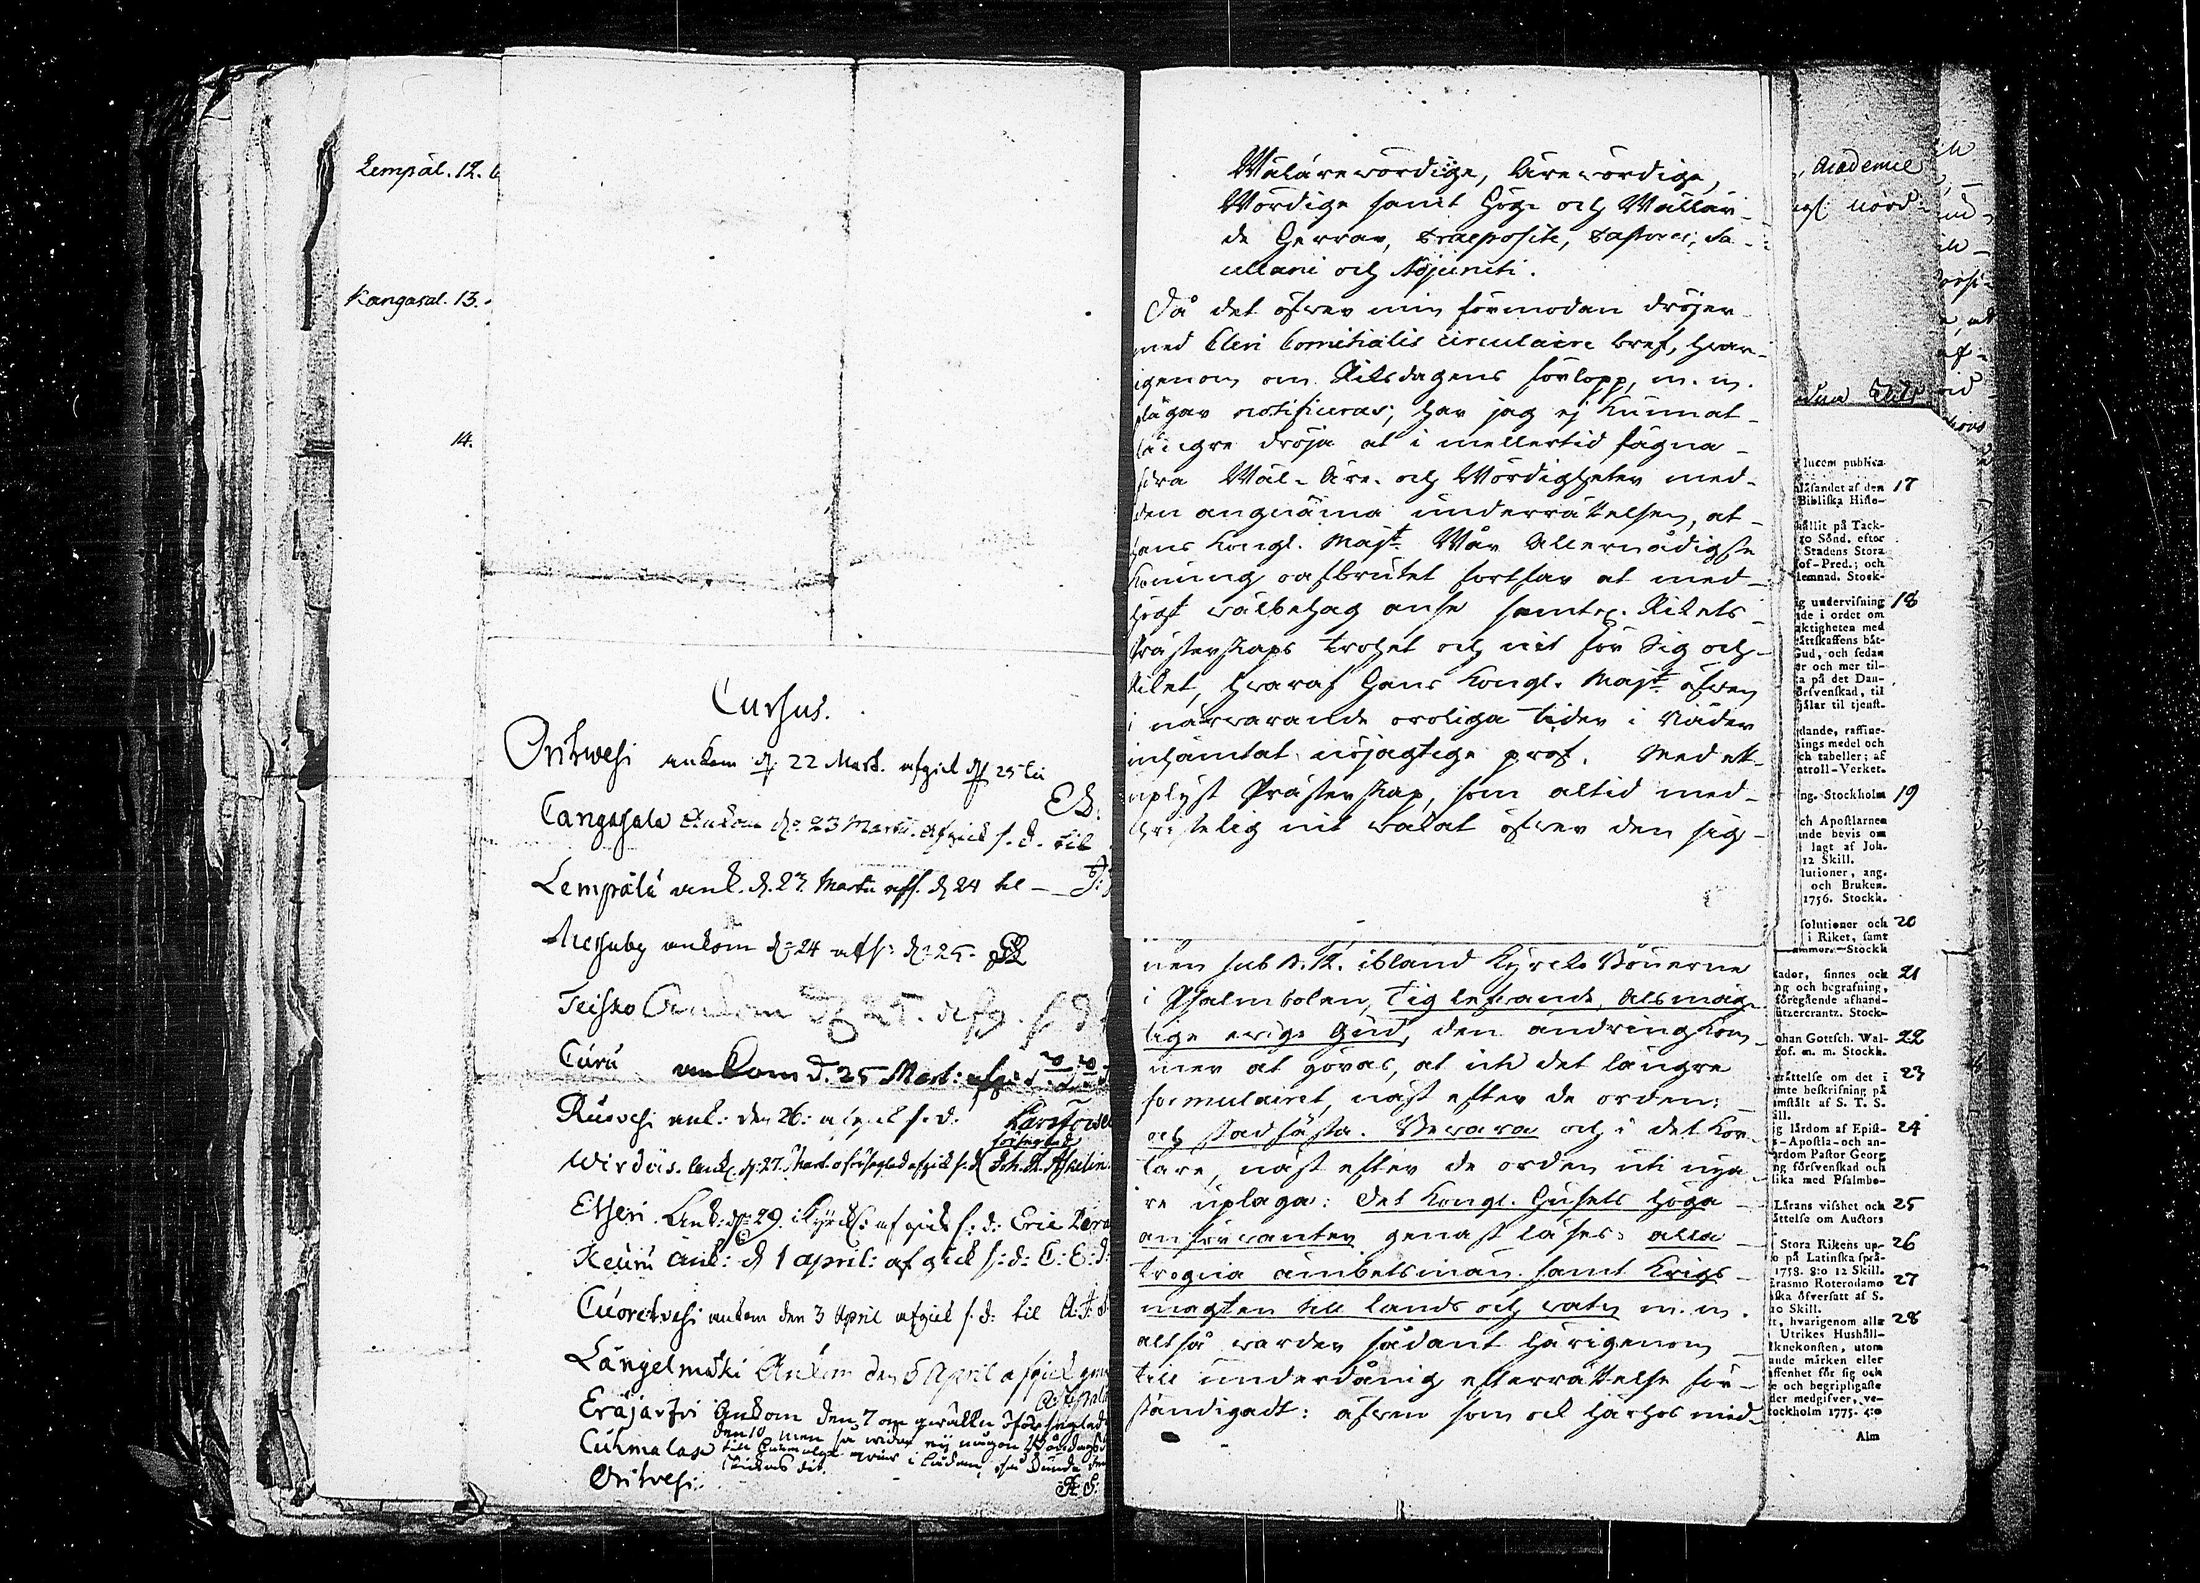 Lempäl. 12.
Kangasal. 13.
14.
Cursus.
Orihwesi ankom d: 22 Mart. afgick d: 25 til
Cangasala Ankom d: 23 Martii. afgick s. d. til
Lempälä ank. d. 23 Martii aff. d 24 til
Messuby ankom d: 24 afs: d: 25.
Teisko Ankom d 25. afg. s d
Curu ankom d. 25 Mart: afg:
Ruovesi ank: den 26: afgick s. d.
Wirdois. Ank. d: 27. Mart. oförseglad afgick s. d
Etseri. Ank: d: 29. afgick s: d: Eric
Keuru Ank: d 1 April: afgick s: d: C: E: d
Cuorewesi ankom den 3 April afgick s. d: til
Längelmäki Ankom den 6 April afgick
Eräjärfvi Ankom den 7 om qwällen
Cuhmalax
Orihvesi:
Wälärewördige, Ärewördige,
Wördige samt Höge och Wällär-
de Herrar, Praeposite, Pastores, Sa-
cellani och Adjuncti.
Då det öfwer min förmodan dröjer
med Cleri Comitialis circulaire bref, hwar-
igenom om Riksdagens förlopp, m. m.
plägar notificeras; har jag ej kunnat
längre dröja at i mellertid fägna
Wäl- Äre- och Wördigheter med
den angnäma underrättelsen, at
Hans Kongl. Majt. Wår Allernådigste
Konung oafbrutet fortfar at med
högst wälbehag anse samtl. Rikets
Prästerskaps trohet och nit för Sig och
Riket, hwaraf Hans Kongl. Majt. öfwen
i närwarande oroliga tider i Nåder
inhämtat nöjagtige prof. Med ett
uplyst Prästerskap, som altid med
Christelig nit wakat öfwer den sig
nen sub N. 12. ibland Kyrko Bönerne
i Psalmboken, Tig lefwande, Alsmäg-
tige ewige Gud, den ändring kom-
mer at göras, at uti det längre
formulairet, näst efter de orden:
och stadfästa. Bewara och i det kor-
tare, näst efter de orden uti nya-
re uplaga: Det Kongl. Husets höga
anförwanter genast läses: alla
trogna ämbetsmän samt Krigs-
magten till lands och watn m. m.
altså warder sådant härigenom
till underdånig efterrättelse för-
ständigadt: äfwen som ock härhos med-
Academie
lucem publica
låsandet af den 17
Bibliska Histo-
hållit på Tack-
20 Sönd. efter
Stadens Stora
of-Pred.; och
lemnad. Stock-
ig undervisning 18
nde i ordet om
aktigheten med
rättskaffens båt-
Gud, och sedan
er och mer til-
ra på det Dan-
örsvenskad, til
hjälar til tjenst.
dande, raffine-
nings medel och
ch tabeller; af
ntroll-Verket.
ng. Stockholm 19
ch Apostlarnes
nde bevis om
i lagt af Joh.
12 Skill.
lutioner, ang.
och Bruken.
1756. Stockh.
solutioner och 20
i Riket, samt
ammer. Stockh
kador, sinnes och 21
ng och begrafning,
föregående afhand-
utzercrantz. Stock-
ohan Gottsch. Wal- 22
rof. m. m. Stockh.
rättelse om det i 23
mte beskrifning på
amstålt af S. T. S.
ill.
ig lärdom af Epist- 24
s-Apostla- och an-
ardom Pastor Georg
ng försvenskad och
lika med Psalmbo-
Lärans visshet och 25
åttelse om Auctors
Stora Rikens up- 26
o på Latinska språ-
1758. 8:o 12 Skill.
Erasmo Roterodamo 27
ska öfversatt af S.
20 Skill.
tt, hvarigenom alle 28
Utrikes Hushåll-
knekonsten, utom
ande märken eller
affenhet för sig och
e och begripligaste
der medgifver, ve-
tockholm 1775. 4:o
Alm